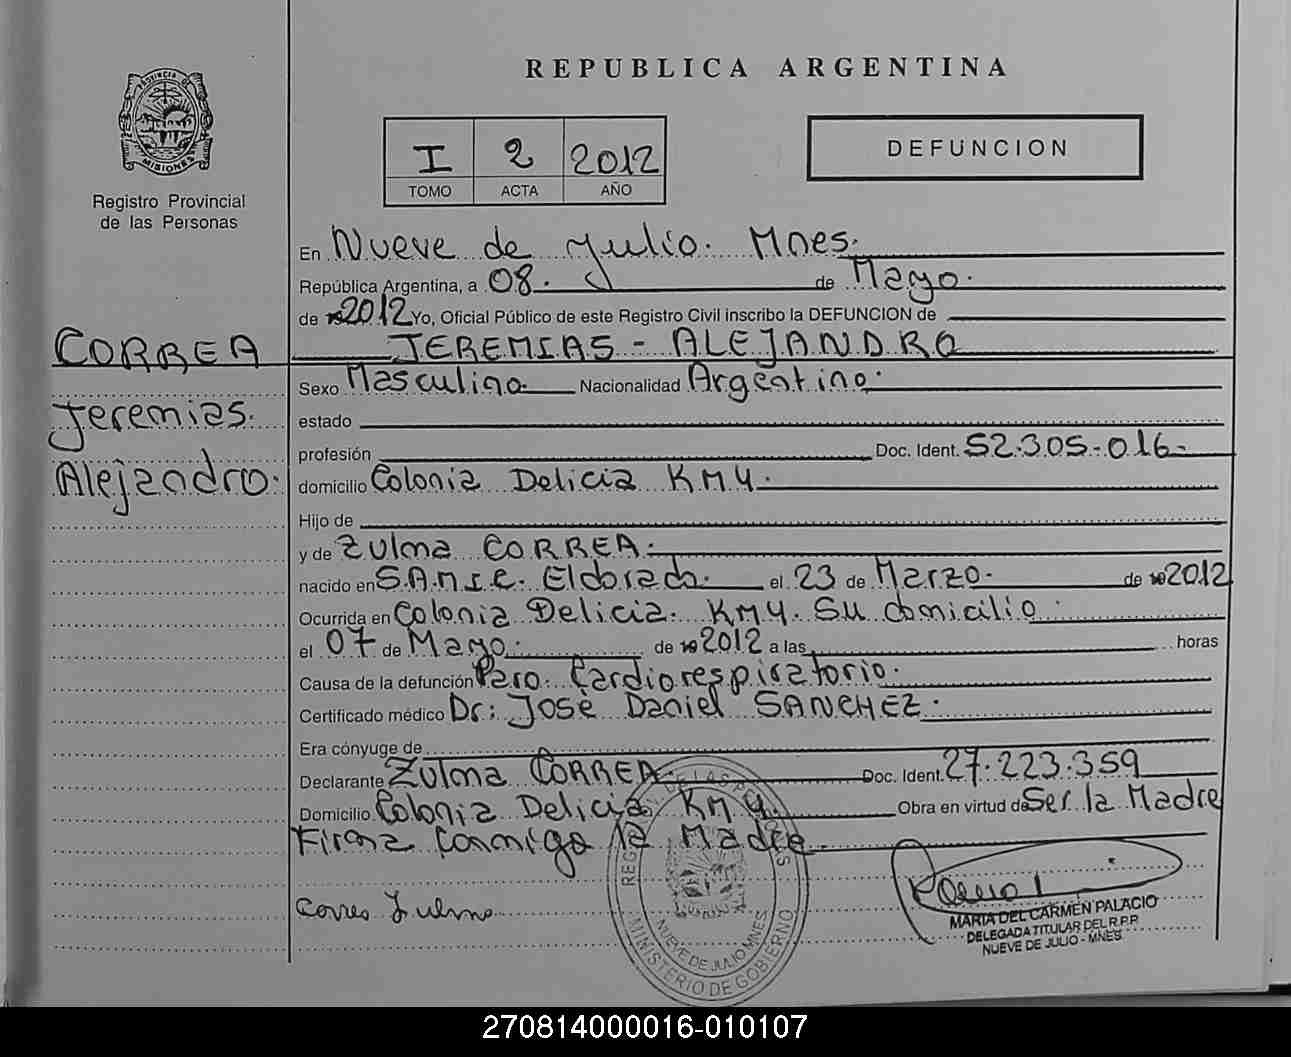 PROVINCIA DE
MISIONES
Registro Provincial
de las Personas
CORREA
Jeremias.
Alejandro.
REPUBLICA ARGENTINA
I 2 2012
TOMO ACTA AÑO
DEFUNCION
En Nueve de Julio. Mnes.
República Argentina, a 08. de Mayo.
de 2012 Yo, Oficial Público de este Registro Civil inscribo la DEFUNCION de
JEREMIAS - ALEJANDRO
Sexo Masculino. Nacionalidad Argentino.
estado
profesión Doc. Ident. 52.305.016-
domicilio Colonia Delicia KM4.
Hijo de
y de Zulma CORREA.
nacido en S.A.M.I.C. Eldorado. el 23 de Marzo. de 2012
Ocurrida en Colonia Delicia. KM4. Su domicilio.
el 07 de Mayo. de 2012 a las horas
Causa de la defunción Paro. Cardiorespiratorio.
Certificado médico Dr: José Daniel SANCHEZ.
Era cónyuge de
Declarante Zulma CORREA Doc. Ident. 27.223.359
Domicilio Colonia Delicia KM4. Obra en virtud de Ser la Madre
Firma Conmigo la Madre.
Correa Zulma
MINISTERIO DE GOBIERNO
NUEVE DE JULIO MNES
MARIA DEL CARMEN PALACIO
DELEGADA TITULAR DEL R.P.P.
NUEVE DE JULIO - MNES
270814000016-010107